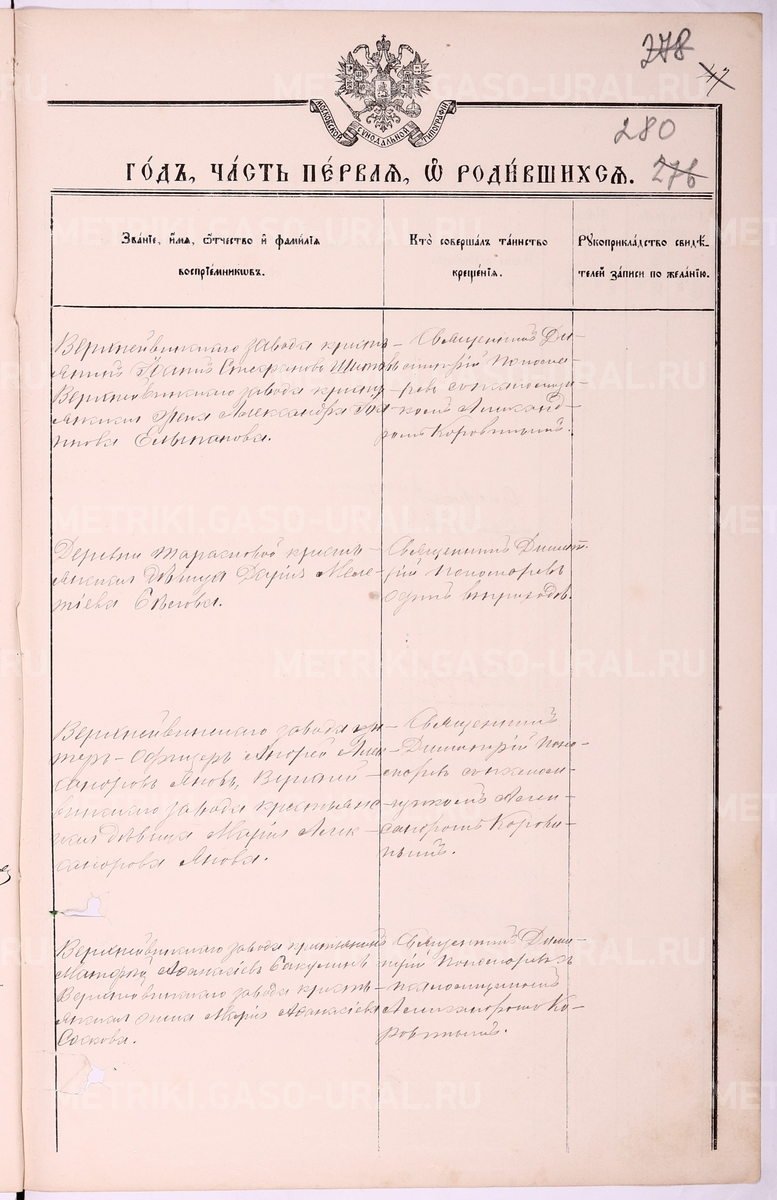 278
47
МОСКОВСКОЙ СѴНОДАЛЬНОЙ ТИПОГРАФІИ
280
276
ГО́ДЪ, ЧА́СТЬ ПЕ́РВАЯ, Ѽ РОДИ́ВШИХСЯ.
Зва́нїе, и́мя, ѻ́тчество и҆ фами́лїя
воспрїе́мникѡвъ.
Кто̀ соверша́лъ та́инство
креще́нїя.
Рꙋкоприкла́дство свидѣ́-
телей за́писи по жела́нїю.
Верхнейвинскаго завода кресть-
Стефановъ
Верхнейвинскаго завода кресть-
янская жена Александра
Елыпанова.
Священникъ Ди-
митрій Пономо-
ревъ съ псаломщи-
комъ Александ-
ромъ Коровинымъ.
Деревни Тарасковой кресть-
янская дѣвица Дарія Меле-
тіева
Священникъ Димит-
рій Пономоревъ
Верхнейвинскаго завода ун-
теръ-офицеръ Андрей Алек-
сандровъ Яновъ, Верхней-
винскаго завода крестьянс-
кая дѣвица Марія Алек-
сандрова Янова.
Священникъ
Димитрій Поно-
моревъ съ псалом-
щикомъ Алек-
сандромъ Корови-
нымъ.
Верхнейвинскаго завода крестьянинъ
Аѳанасіевъ
Верхнейвинскаго завода кресть-
янская жена Марія Аѳанасіева
Соскова.
Священникъ Дими-
трій Пономоревъ съ
псаломщикомъ
Александромъ Ко-
ровинымъ.
METRIKI.GASO-URAL.RU